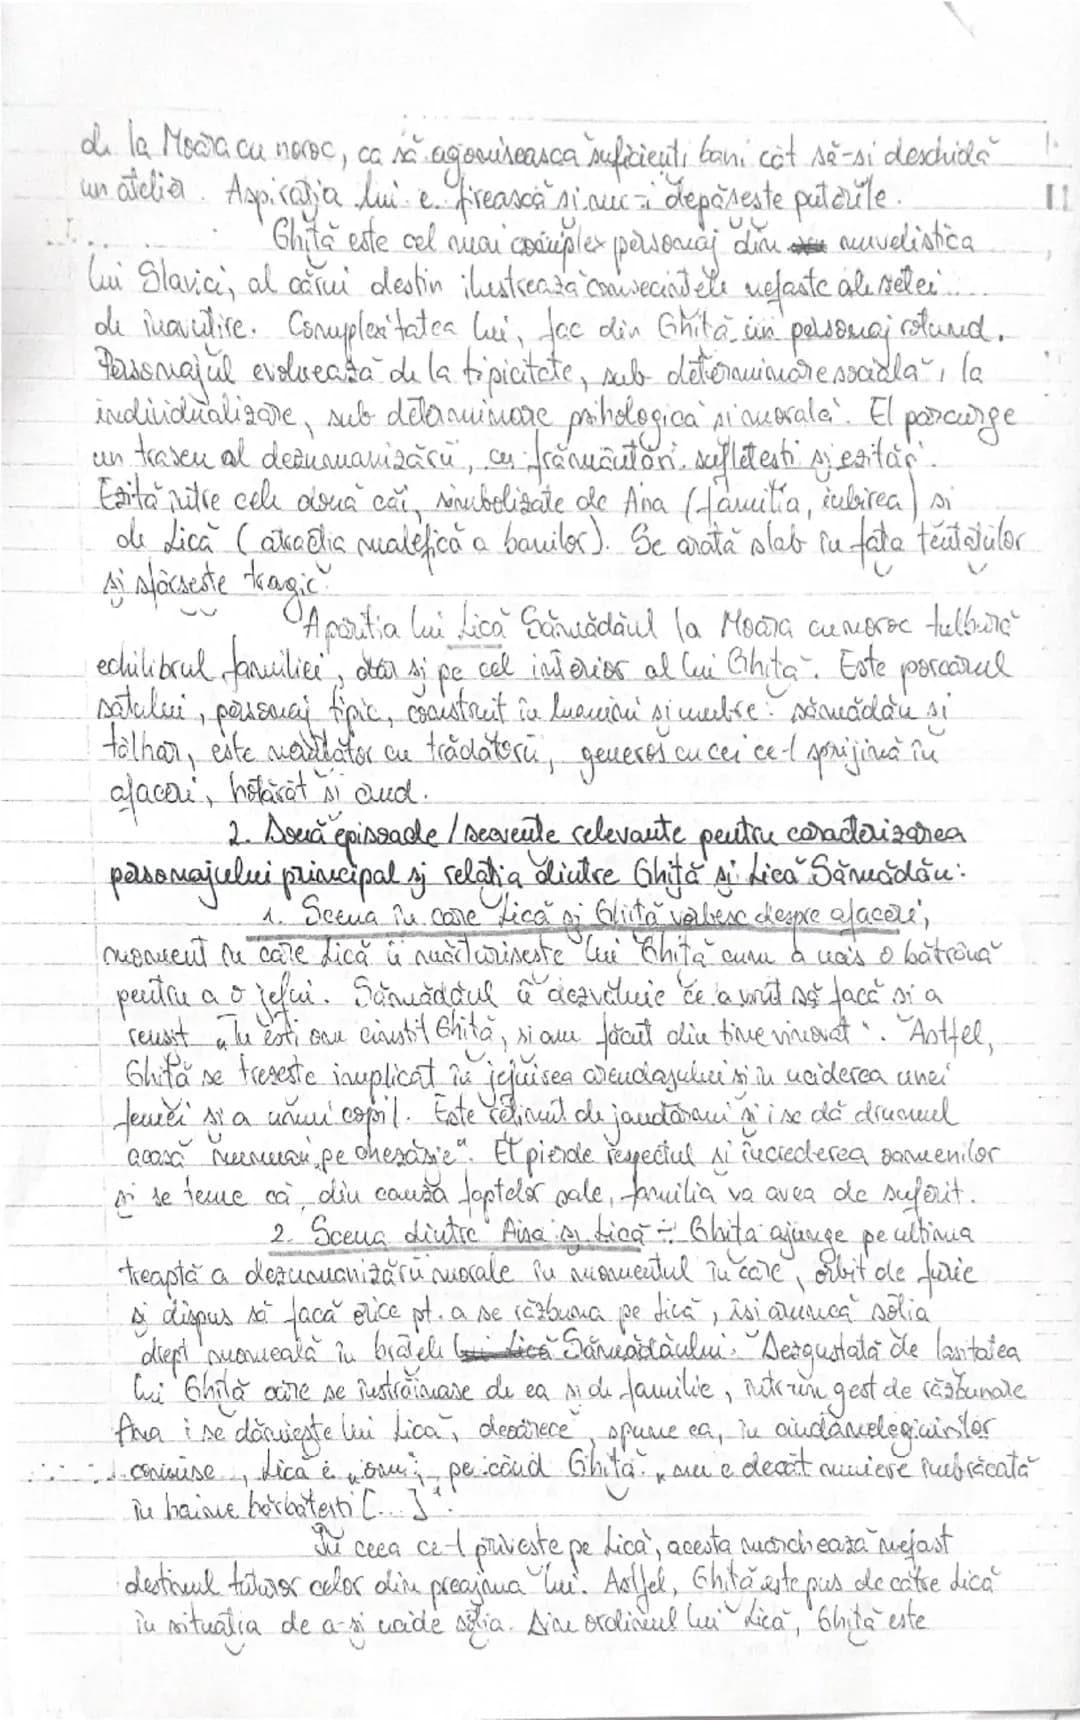 de la Moara cu noroc, ca să agonisească suficienți bani cât să-și deschidă
un atelier. Aspirația lui e firească și nu-i depășește puterile.
Ghiță este cel mai complex personaj din nuvelistica
lui Slavici, al cărui destin ilustrează consecințele nefaste ale setei
de înavuțire. Complexitatea lui, fac din Ghiță un personaj rotund.
Personajul evoluează de la tipicitate, sub determinare socială, la
individualizare, sub determinare psihologică și morală. El parcurge
un traseu al dezumanizării, cu frământări sufletești și ezitări.
Ezită între cele două căi, simbolizate de Ana (familia, iubirea) și
de Lică (atracția malefică a banilor). Se arată slab în fața tentațiilor
și sfârșește tragic.
Apariția lui Lică Sămădăul la Moara cu noroc tulbură
echilibrul familiei, dar și pe cel interior al lui Ghiță. Este porcarul
satului, personaj tipic, construit în lumini și umbre: sămădău și
tâlhar, este necruțător cu trădătorii, generos cu cei ce-l sprijină în
afaceri, hotărât și crud.
2. Două episoade / secvențe relevante pentru caracterizarea
personajului principal și relația dintre Ghiță și Lică Sămădău:
1. Scena în care Lică și Ghiță vorbesc despre afaceri,
moment în care Lică îi mărturisește lui Ghiță cum a ucis o bătrână
pentru a o jefui. Sămădăul îi dezvăluie ce a vrut să facă și a
reușit „Tu ești om cinstit Ghiță, și am făcut din tine vinovat". Astfel,
Ghiță se trezește implicat în jefuirea arendașului și în uciderea unei
femei și a unui copil. Este reținut de jandarmi și i se dă drumul
acasă numai „pe chezășie". El pierde respectul și încrederea oamenilor
și se teme că, din cauza faptelor sale, familia va avea de suferit.
2. Scena dintre Ana și Lică - Ghiță ajunge pe ultima
treaptă a dezumanizării morale în momentul în care, orbit de furie
și dispus să facă orice pt. a se răzbuna pe Lică, își aruncă soția
drept momeală în brațele lui Lică Sămădăului. Dezgustată de lașitatea
lui Ghiță care se înstrăinase de ea și de familie, într-un gest de răzbunare
Ana i se dăruiește lui Lică, deoarece, spune ea, în ciuda nelegiuirilor
comise, Lică e „om", pe când Ghiță „nu e decât muiere îmbrăcată
în haine bărbătești [...]".
În ceea ce-l privește pe Lică, acesta marchează nefast
destinul tuturor celor din preajma lui. Astfel, Ghiță este pus de către Lică
în situația de a-și ucide soția. Din ordinul lui Lică, Ghiță este